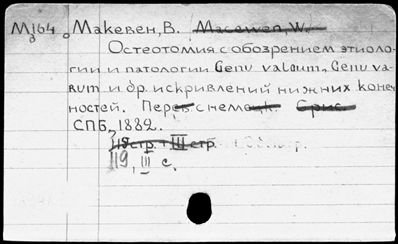 М164 Макевен, В. Macewen, W.
Остеотомия с обозрением этиоло-
гии и патологии Genu valgum, Genu va-
rum и др. искривлений нижних конеч-
ностей. Перев с немецк.
СПБ, 1882.
119 стр. III стр.
119, III с.